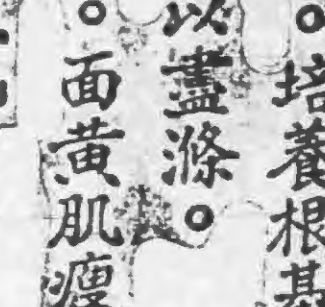 。培養根基
以盡滌。
。面黄肌瘦